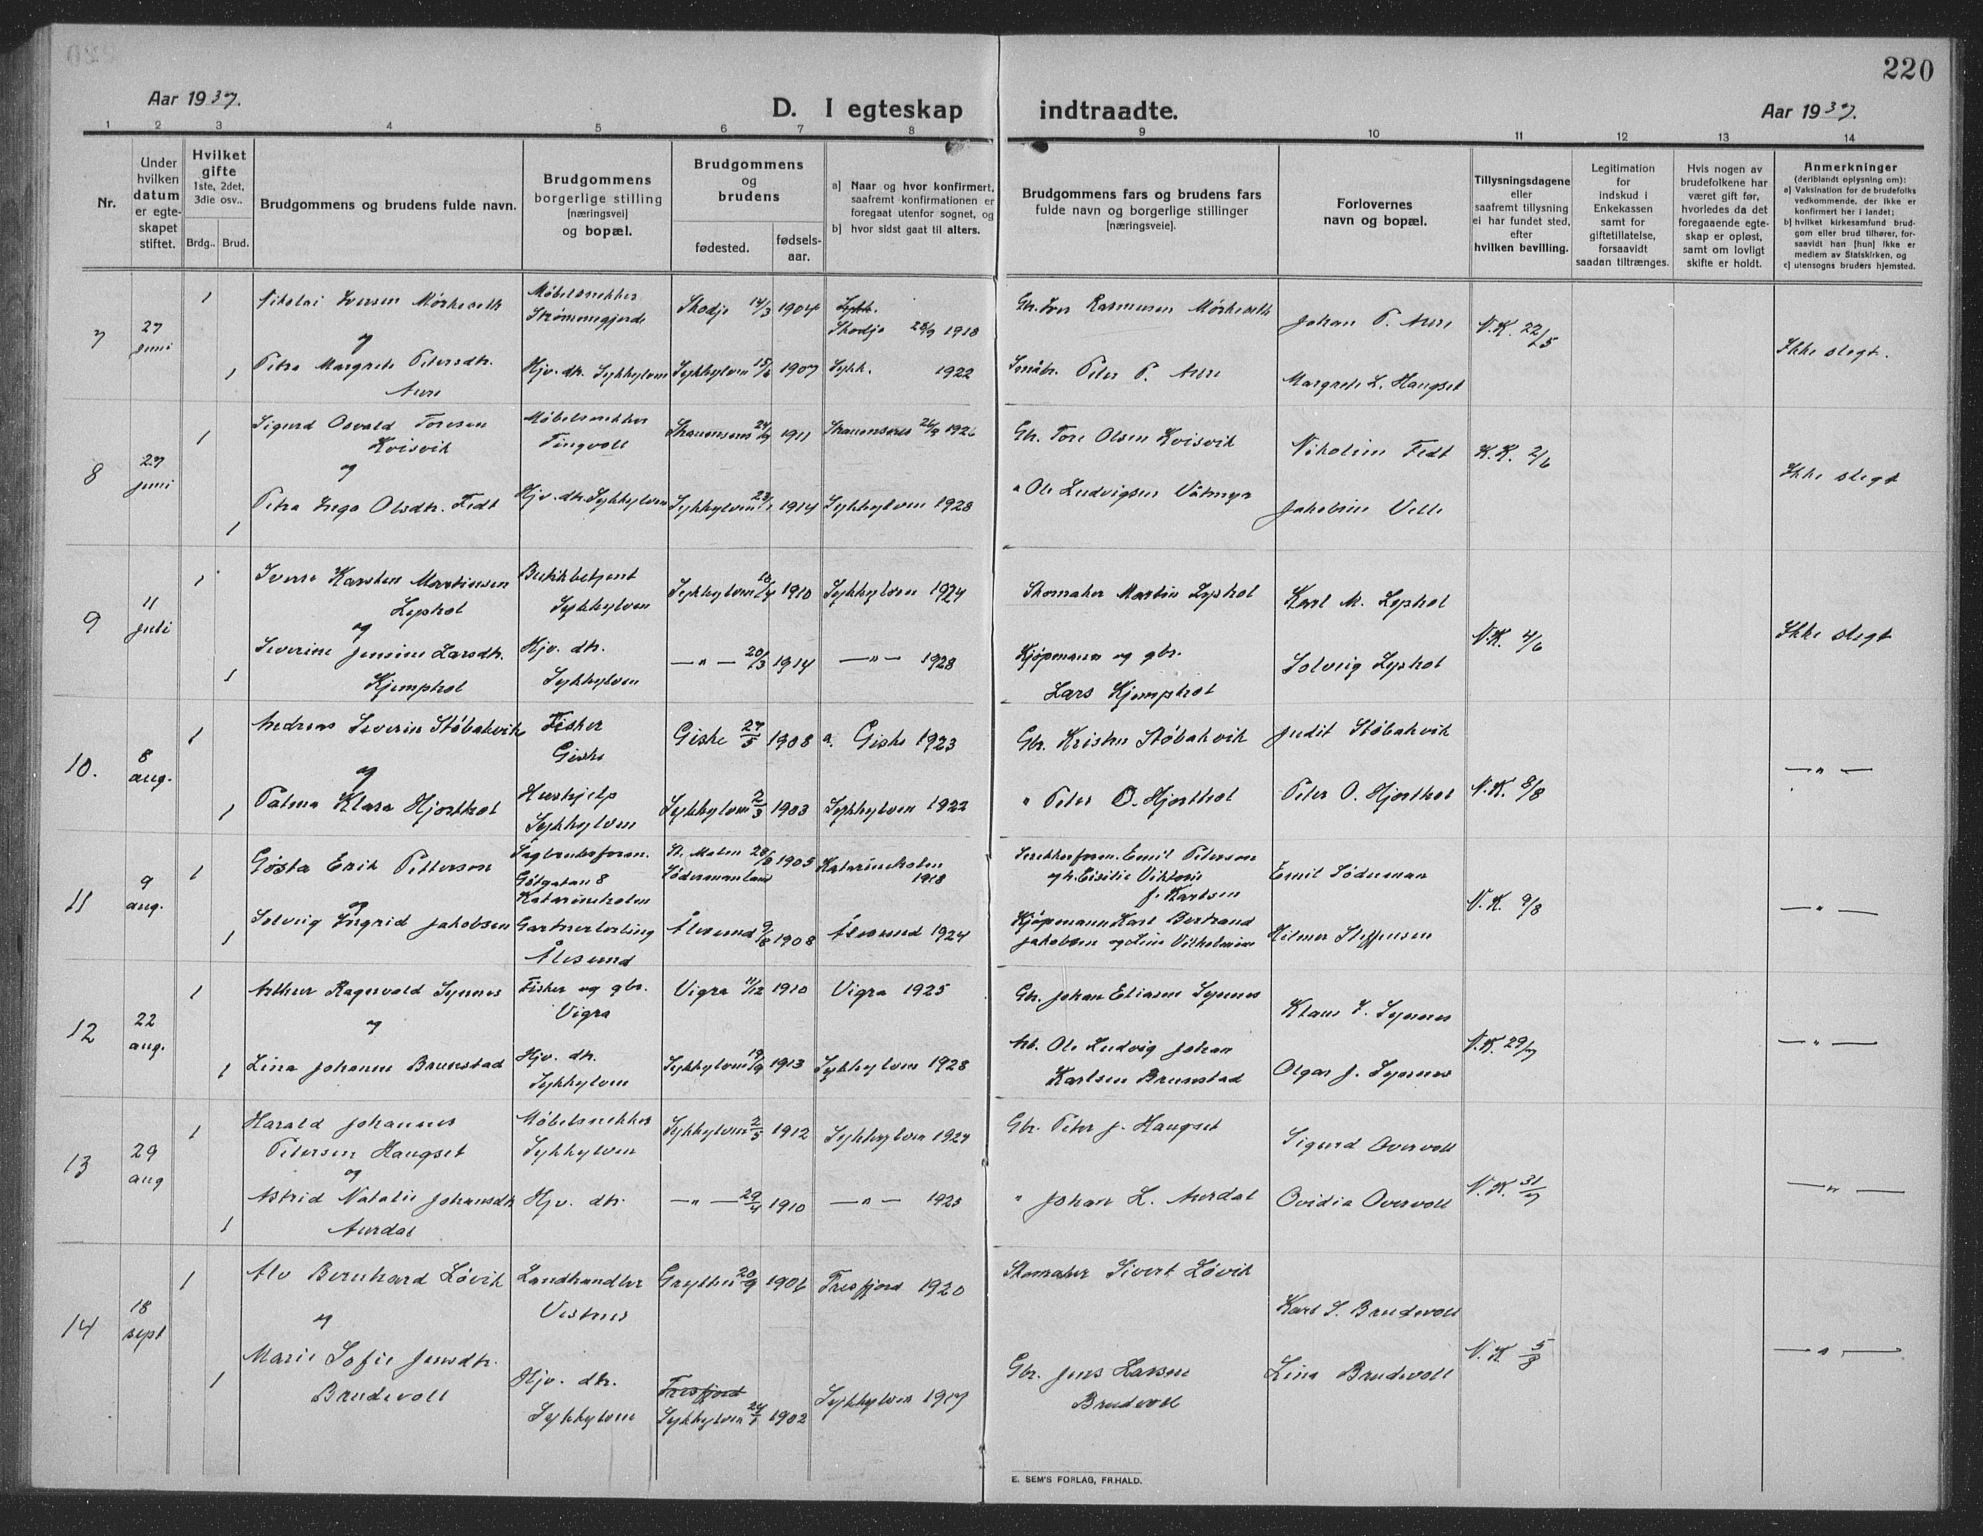 220
Aar 1937.
D. I egteskap indtraadte.
Aar 1937.
1 2 3 4 5 6 7 8 9 10 11 12 13 14
Nr.
Under hvilken datum er egte-skapet stiftet.
Hvilket gifte 1ste, 2det, 3die osv..
Brdg.. Brud.
Brudgommens og brudens fulde navn.
Brudgommens borgerlige stilling [næringsvei] og bopæl.
Brudgommens og brudens
fødested. fødsels-aar.
a] Naar og hvor konfirmert, saafremt konfirmationen er foregaat utenfor sognet, og
b] hvor sidst gaat til alters.
Brudgommens fars og brudens fars fulde navn og borgerlige stillinger [næringsveie].
Forlovernes navn og bopæl.
Tillysningsdagene eller saafremt tillysning ei har fundet sted, efter hvilken bevilling.
Legitimation for indskud i Enkekassen samt for giftetillatelse, forsaavidt saadan tiltrænges.
Hvis nogen av brudefolkene har været gift før, hvorledes da det foregaaende egte-skap er opløst, samt om lovligt skifte er holdt.
Anmerkninger (deriblandt oplysning om):
a) Vaksination for de brudefolks vedkommende, der ikke er konfirmert her i landet;
b) hvilket kirkesamfund brud-gom eller brud tilhører, for-saavidt han [hun] ikke er medlem av Statskirken, og
c) utensogns bruders hjemsted.
7 27 juni
1 Nikolai Iversen Mørkeseth Møbelsnekker Strømmegjerde Skodje 14/3 1904 Sykk. Skodje 28/9 1918 Gbr. Iver Rasmussen Mørkeseth Johan P. Aure N.K. 22/5
og
1 Petra Margrete Petersdtr. Aure Hjv. dtr. Sykkylven Sykkylven 15/6 1907 Sykk. 1922 Småbr. Peter P. Aure Margrete L. Haugset Ikke slegt.
8 27 juni
1 Sigurd Osvald Toresen Kvisvik Møbelsnekker Tingvoll Straumsnes 24/9 1911 Straumsnes 26/9 1926 Gbr. Tore Olsen Kvisvik Nikoline Fedt K.K. 2/6
og
1 Petra Inga Olsdtr. Fedt Hjv. dtr. Sykkylven Sykkylven 23/1 1914 Sykkylven 1928 " Ole Ludvigsen Vatmyr Jakobine Velle Ikke slegt
9 11 juli
1 Sverre Karsten Martinsen Lyshol Butikbetjent Sykkylven Sykkylven 18/4 1910 Sykkylven 1924 Skomaker Martin Lyshol Karl M. Lyshol
og
1 Severine Jensine Larsdtr. Kjemphol Hjv. dtr. Sykkylven — " — 20/3 1914 — " — 1928 Kjøpmann og gbr. Lars Kjemphol Solveig Lyshol N.K. 4/6 Ikke slegt
10. 8 aug.
1 Andreas Severin Støbakvik Fisker Giske Giske 27/5 1908 a. Giske 1923 Gbr. Kristen Støbakvik Judit Støbakvik
og
1 Palma Klara Hjorthol Hushjelp Sykkylven Sykkylven 2/3 1903 Sykkylven 1922 " Peter O. Hjorthol Peter O. Hjorthol N.K. 8/8 — " —
11 9 aug.
1 Gøsta Erik Petterson Götgatan 8 Katarineholm St. Malm Södermanland 1905 Katarineholm 1918 Emil Peterson Emil Söderman
og
1 Solveig Ingrid Jakobsen Gartnerlærling Ålesund Ålesund 9/8 1908 Ålesund 1924 Kjøpmann Karl Bertrand Jakobsen og Line Vilhelmine Hilmer Steffensen N.K. 9/8 — " —
12 22 aug.
1 Arthur Ragnvald Synnes Fisker og gbr. Vigra Vigra 11/12 1910 Vigra 1925 Gbr. Johan Eliasen Synnes Klaus J. Synnes
og
1 Lina Johanne Brunstad Hjv. dtr. Sykkylven Sykkylven 19/9 1913 Sykkylven 1928 Arb. Ole Ludvig Johan Karlsen Brunstad Olgar J. Synnes N.K. 29/7 — " —
13 29 aug
1 Harald Johannes Petersen Haugset Møbelsnekker Sykkylven Sykkylven 2/5 1912 Sykkylven 1927 Gbr. Peter J. Haugset Sigurd Overvoll
og
1 Astrid Natalie Johansdtr. Aurdal Hjv. dtr. — " — 29/4 1910 — " — 1925 " Johan L. Aurdal Ovidia Overvoll N.K. 31/7 — " —
14 18 sept
1 Alv Bernhard Løvik Landhandler Vestnes Grytten 20/9 1906 Tresfjord 1920 Skomaker Sivert Løvik Karl S. Brudevoll
og
1 Marie Sofie Jensdtr. Brudevoll Hjv. dtr. Sykkylven Tresfjord Sykkylven 24/1 1902 Sykkylven 1917 Gbr. Jens Larsen Brudevoll Lina Brudevoll N.K. 5/8 — " —
E. SEM'S FORLAG, FR.HALD.